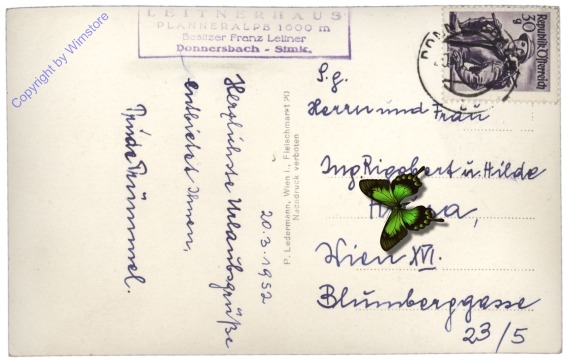 Copyright by Wimstore
LEITNERHAUS
PLANNERALPE 1600 m
Besitzer Franz Leitner
Donnersbach - Stmk.
30 g
Republik Österreich
S. g.
Herrn und Frau
Ing. Rigobert u. Hilde
Wien XVI.
Blumberggasse
23/5
20.3.1952
Herzlichste Urlaubsgrüße
entbietet Ihnen,
P. Ledermann, Wien I., Fleischmarkt 20
Nachdruck verboten